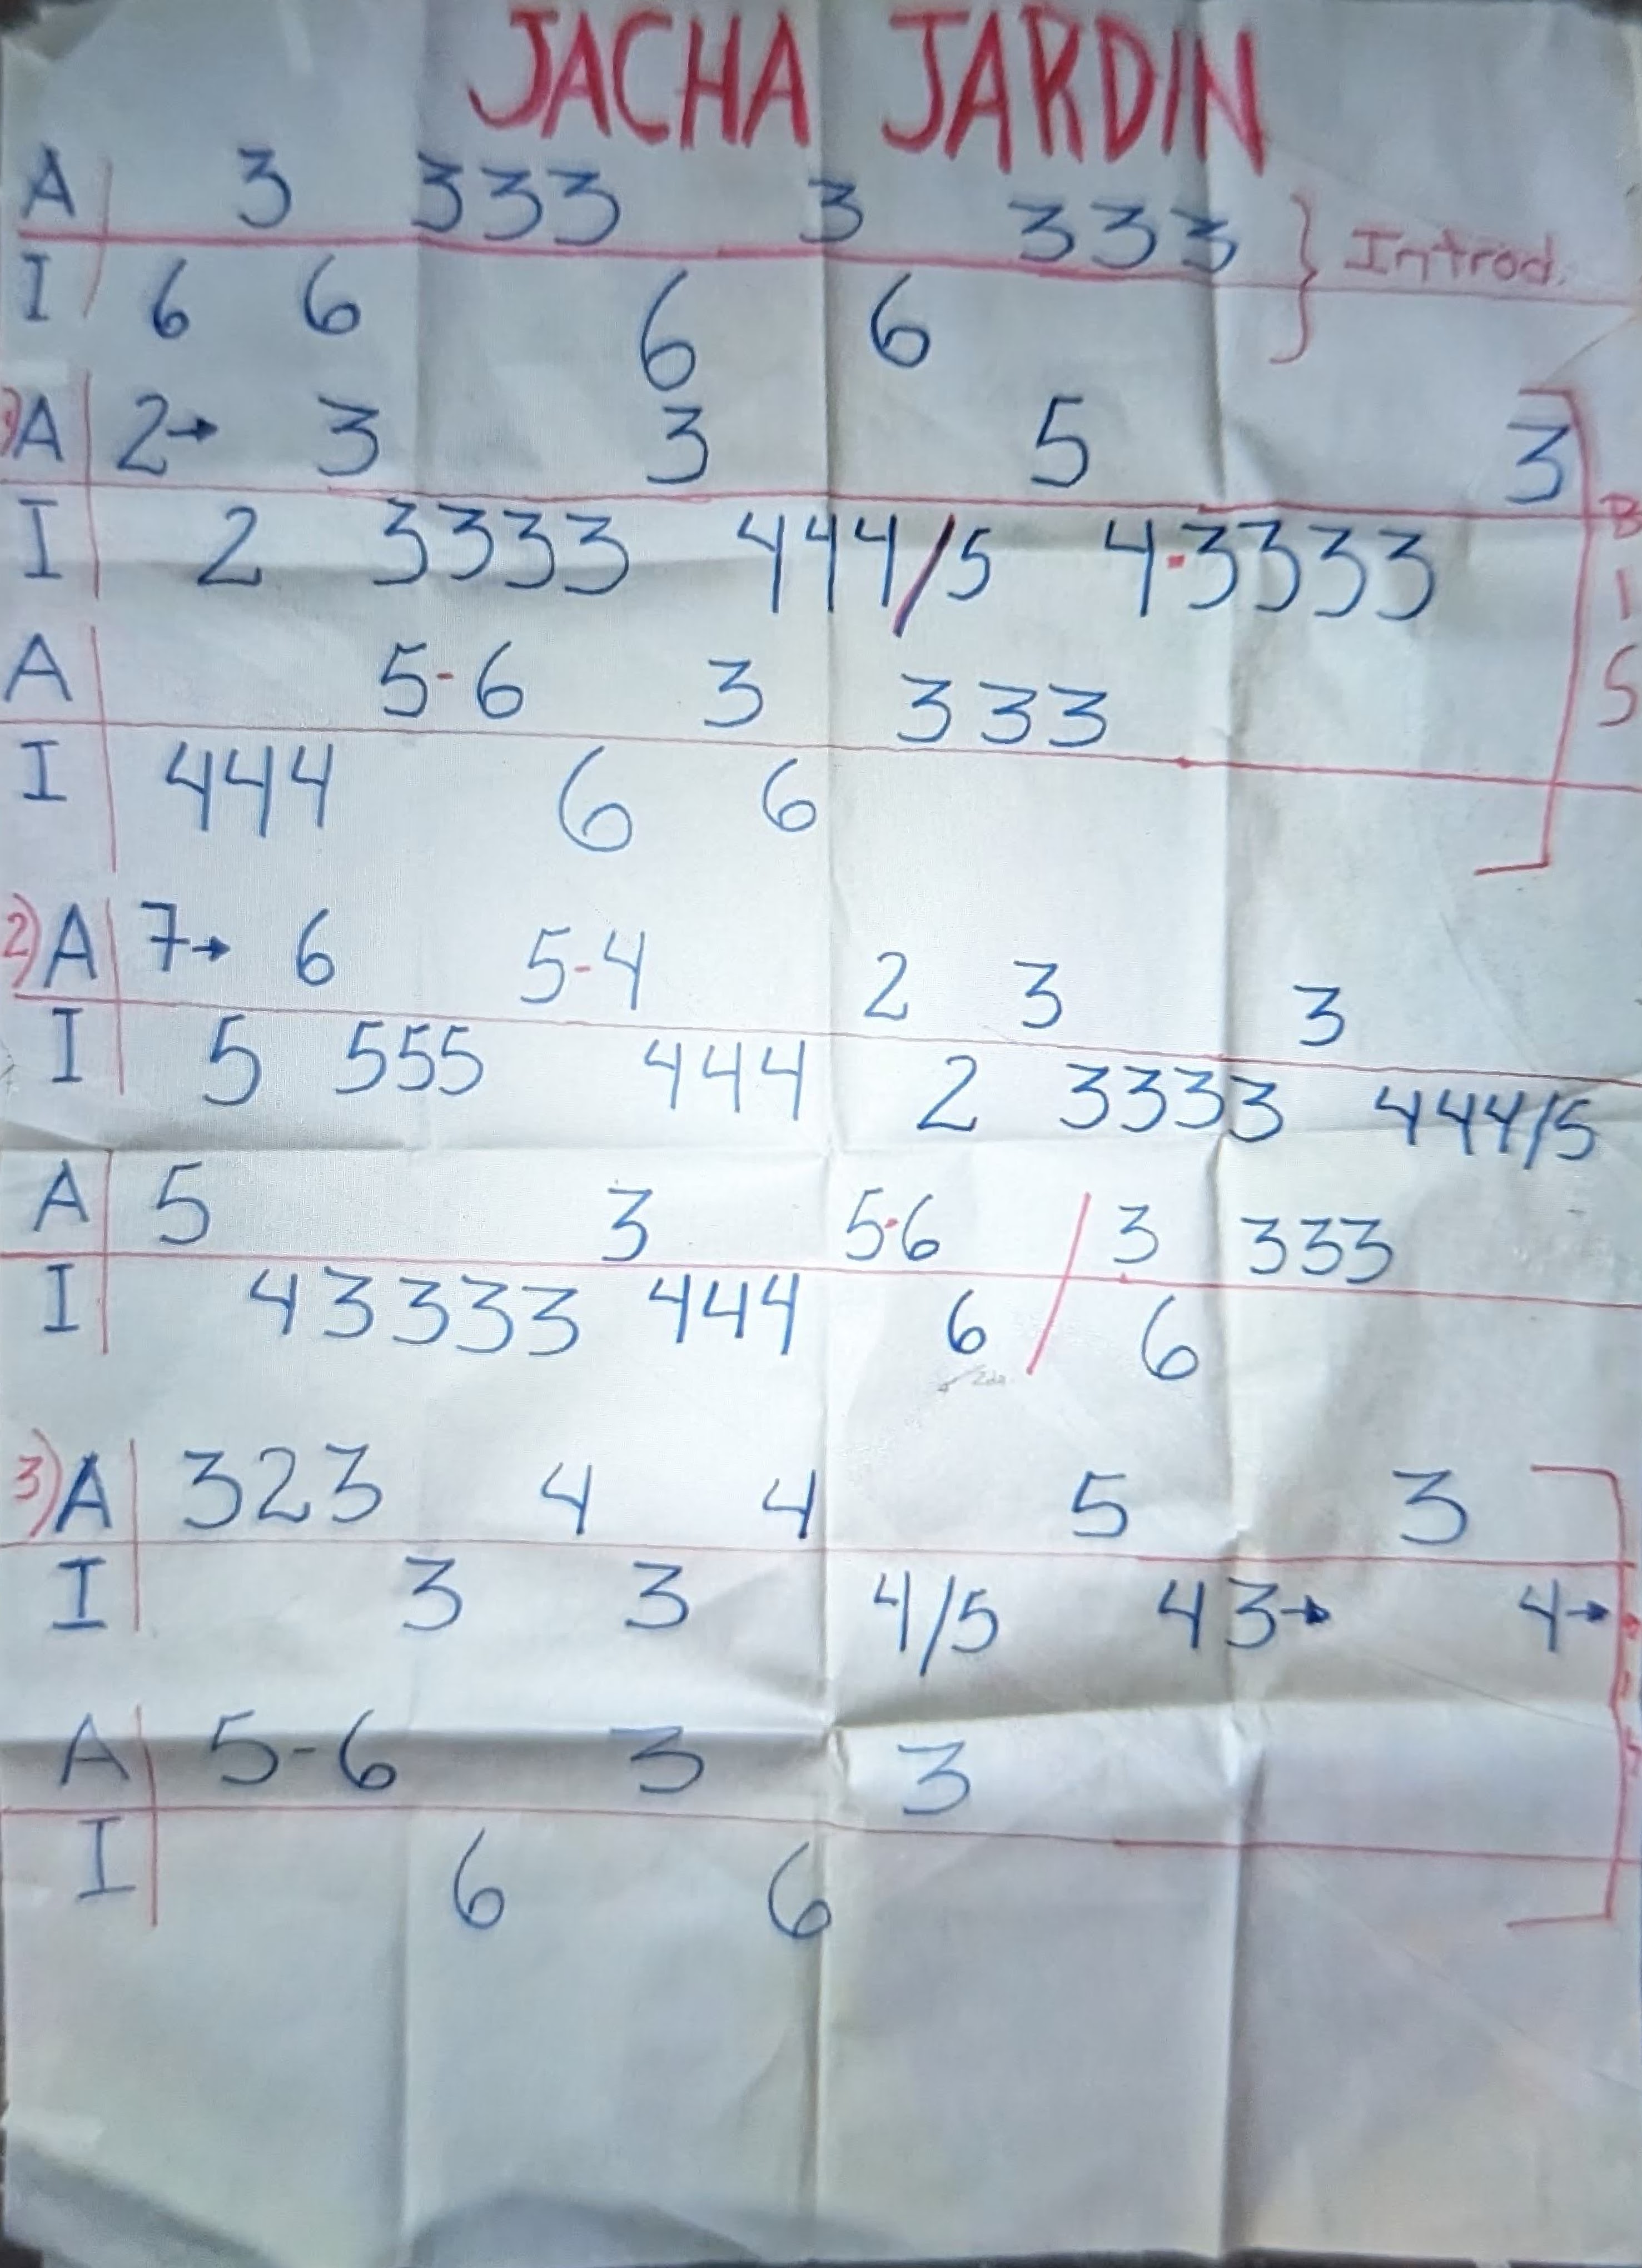 JACHA JARDIN
A 3 333 3 333 } Introd.
I 6 6 6 6
1) A 2→ 3 3 5 3
I 2 3333 444/5 4-3333
BIS
A 5-6 3 333
I 444 6 6
2) A 7→ 6 5-4 2 3 3
I 5 555 444 2 3333 444/5
A 5 3 5-6 / 3 333
I 43333 444 6 / 6
3) A 323 4 4 5 3
I 3 3 4/5 43→ 4→
A 5-6 3 3
I 6 6